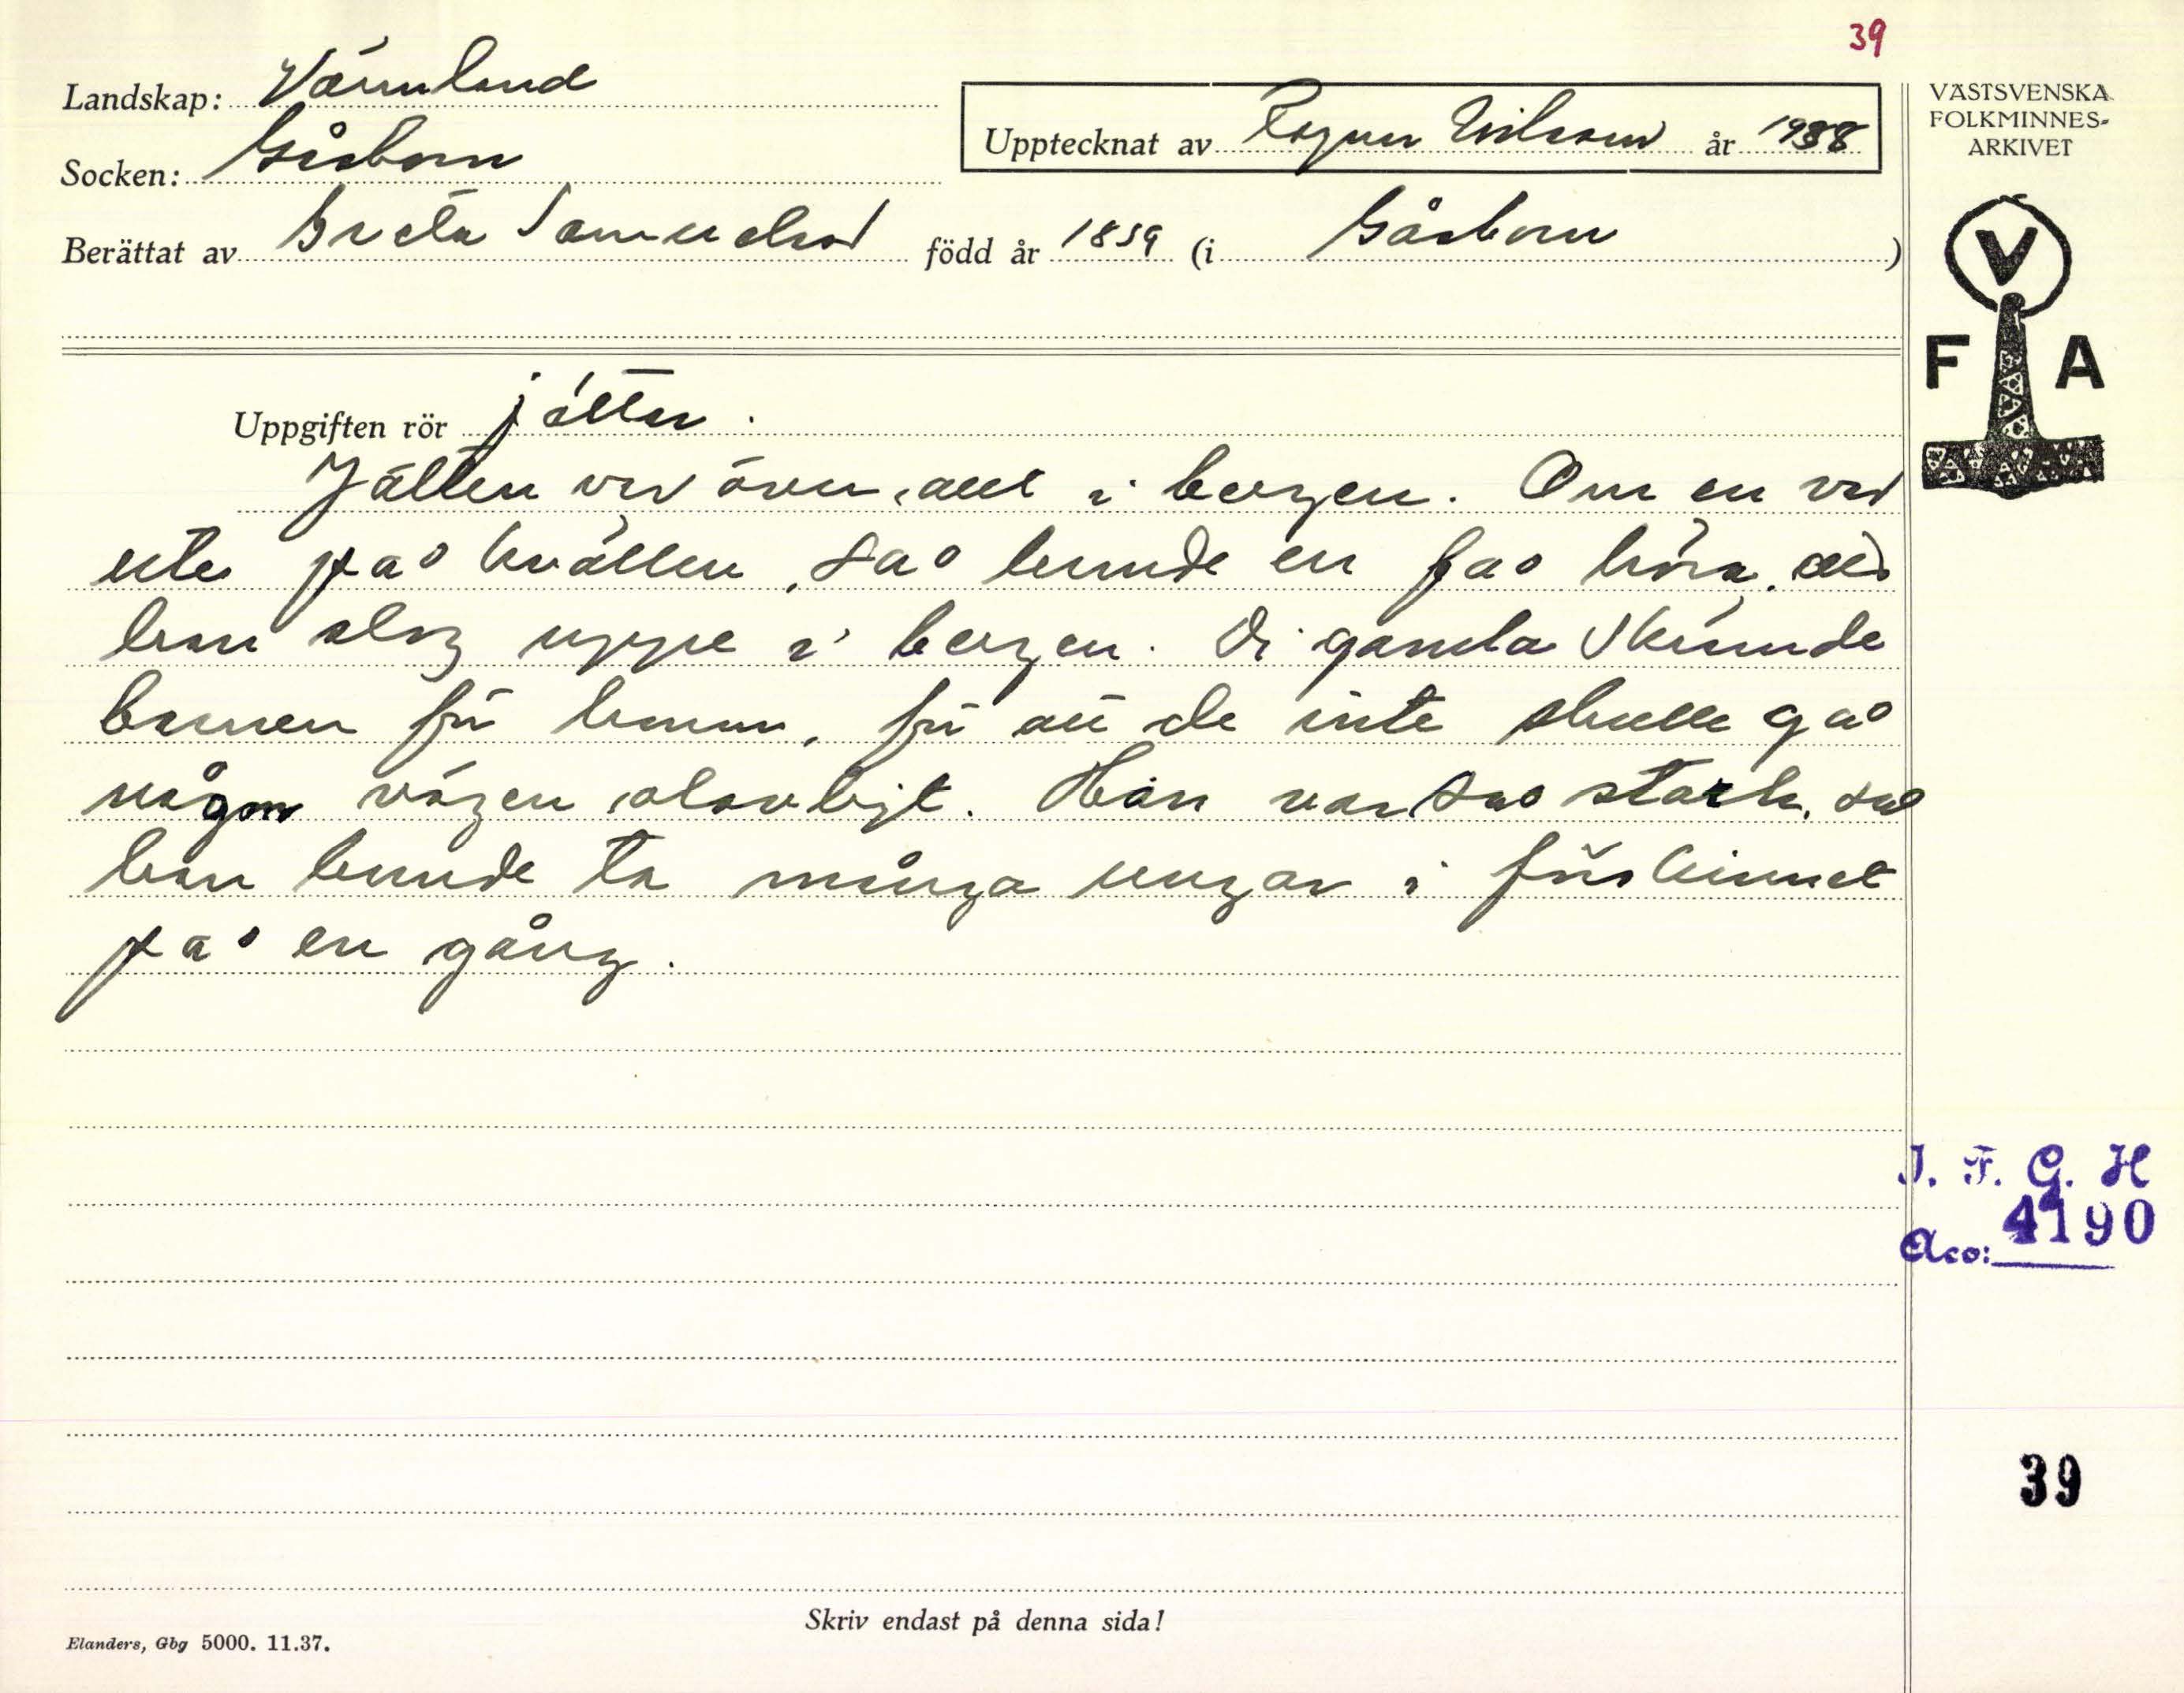 39
Landskap: Värmland
Socken: Gåsborn
Upptecknat av Ragnar Nilsson år 1938
VÄSTSVENSKA
FOLKMINNES-
ARKIVET
Berättat av Greta Samuelsson född år 1859 (i Gåsborn)
V
F A
Uppgiften rör jätten.
Jätten var även, att i bergen. Om en var
ute på kvällen, så kunde en få höra, att
han slog uppe i bergen. Di gamla skrämde
barnen för honom, för att de inte skulle gå
någon vägen olovligt. Han var så stark, så
han kunde ta många ungar i förskinnet
på en gång.
I. F. G. H
Acc: 4190
39
Skriv endast på denna sida!
Elanders, Gbg 5000. 11.37.